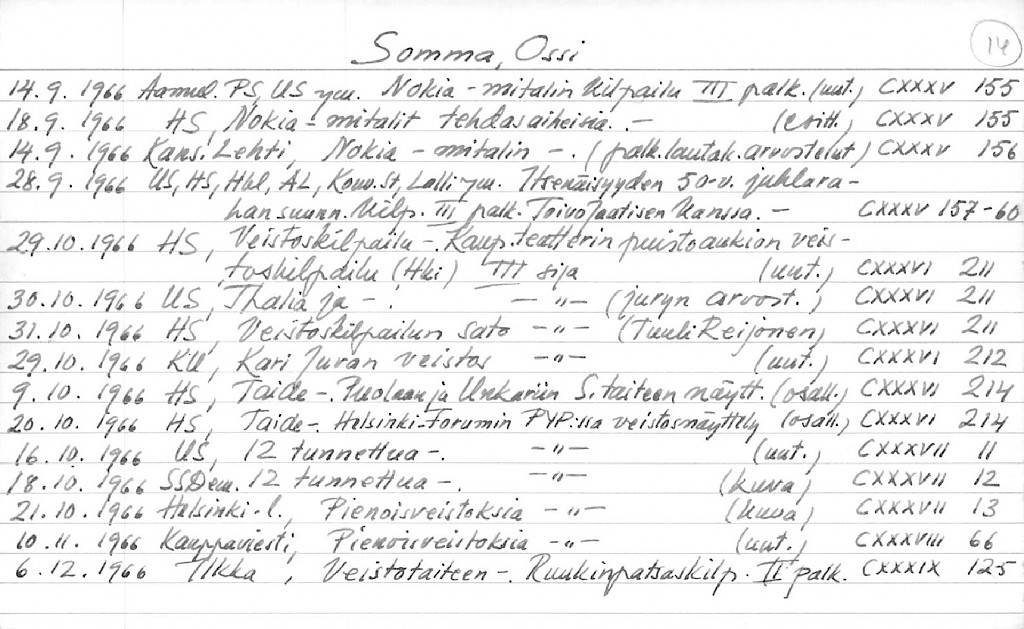 Somma, Ossi
14
14.9. 1966 Aamul. PS, US ym. Nokia-mitalin kilpailu III palk. (uut.) CXXXV 155
18.9. 1966 HS, Nokia-mitalit tehdasaiheisia.- (esitt.) CXXXV 155
14.9. 1966 Kans. Lehti, Nokia-mitalin -. (palk.lautak.arvostelut) CXXXV 156
28.9. 1966 US, HS, Hbl, AL, Kouv.St, Lalli ym. Itsenäisyyden 50-v. juhlara-
han suunn. kilp. III palk. Toivo Jaatisen kanssa.- CXXXV 157-60
29.10. 1966 HS, Veistoskilpailu-. Kaup.teatterin puistoaukion veis-
toskilpailu (Hki) III sija (uut.) CXXXVI 211
30.10. 1966 US, Thalia ja -. -"- (juryn arvost.) CXXXVI 211
31.10. 1966 HS, Veistoskilpailun sato -"- (Tuuli Reijonen) CXXXVI 211
29.10. 1966 KU, Kari Juvan veistos -"- (uut.) CXXXVI 212
9.10. 1966 HS, Taide-. Puolaan ja Unkariin S. taiteen näytt. (osall.) CXXXVI 214
20.10. 1966 HS, Taide-. Helsinki-Forumin PYP:ssa veistosnäyttely (osall.) CXXXVI 214
16.10. 1966 US, 12 tunnettua-. -"- (uut.) CXXXVII 11
18.10. 1966 SSDem. 12 tunnettua-. -"- (kuva) CXXXVII 12
21.10. 1966 Helsinki-l., Pienoisveistoksia -"- (kuva) CXXXVII 13
10.11. 1966 Kauppaviesti, Pienoisveistoksia -"- (uut.) CXXXVIII 66
6.12. 1966 Ilkka, Veistotaiteen-. Ruukinpatsaskilp. II palk. CXXXIX 125